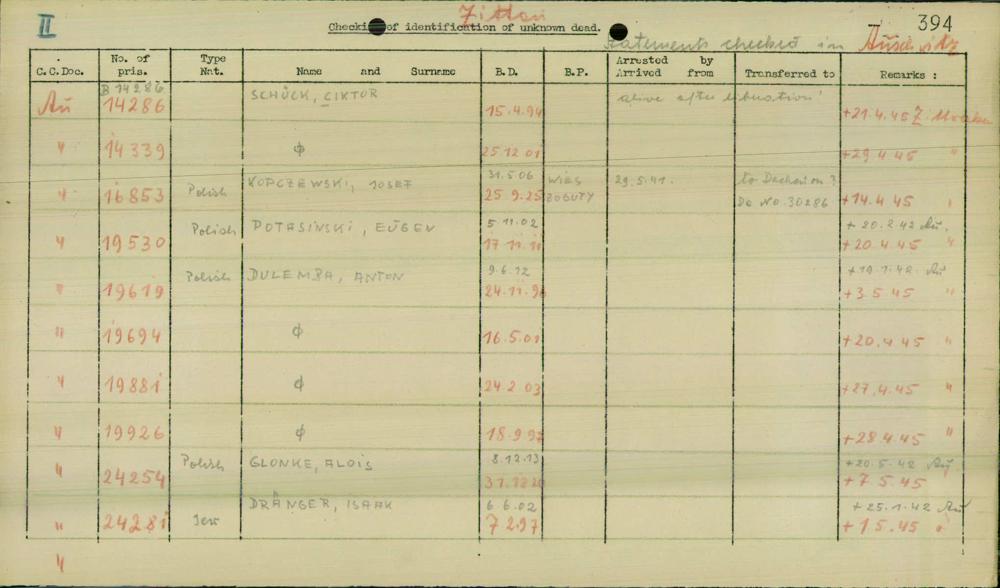 II Zittau 394
Checking of identification of unknown dead.
Statements checked in Auschwitz
C.C.Doc. No. of pris. Type Nat. Name and Surname B.D. B.P. Arrested by Arrived from Transferred to Remarks :
B 14286
Au 14286 SCHÜCK, CIKTOR 15.4.94 alive after liberation! +21.4.45
" 14339 ϕ 25.12.01 +29.4.45 "
KOPCZEWSKI, JOSEF 31.5.06 WIES 29.5.41. to Dachau on ?
" 16853 Polish 25.9.25 BOGUTY Da No. 30286 +14.4.45 "
Polish POTASINSKI, EUGEN 5.11.02 + 20.2.42 Au.
" 19530 17.11.11 +20.4.45 "
Polish DULEMBA, ANTON 9.6.12 +19.1.42. Au
" 19619 24.11.96 +3.5.45 "
" 19694 ϕ 16.5.01 +20.4.45 "
" 19881 ϕ 24.2.03 +27.4.45 "
" 19926 ϕ 18.9.97 +28.4.45 "
Polish GLONKE, ALOIS 8.12.13 +20.5.42 Au
" 24254 31.12.20 +7.5.45
DRÄNGER, ISAAK 6.6.02 +25.1.42 Au
" 24281 Jew 7.2.97 +1.5.45 "
"